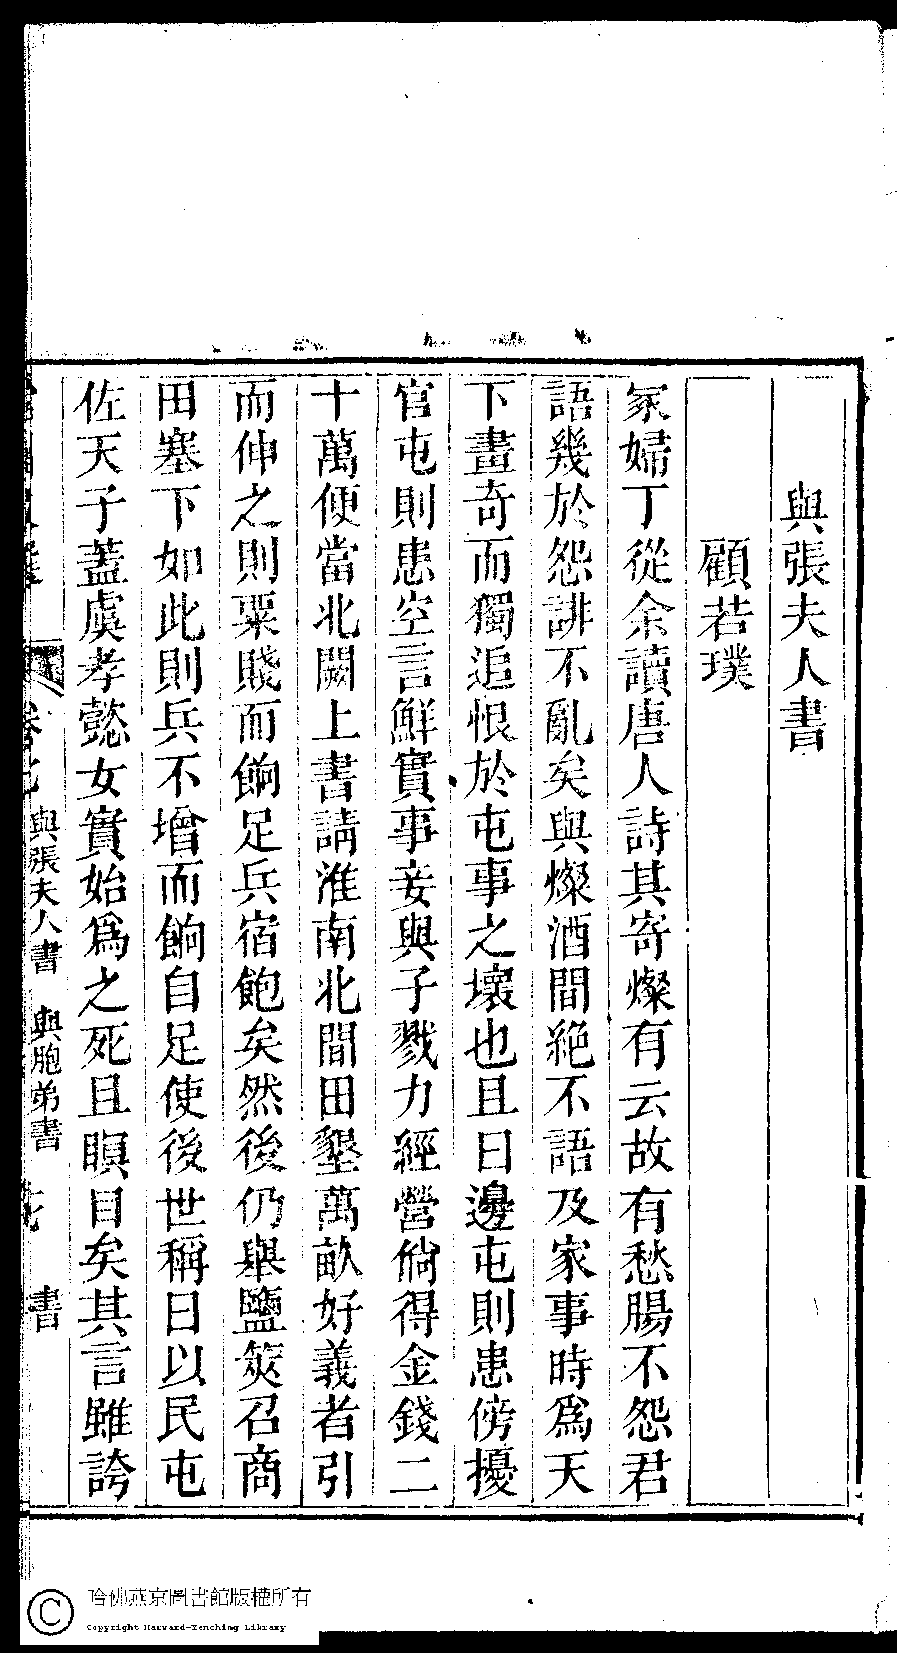 與張夫人書
顧若璞
冢婦丁從余讀唐人詩其寄燦有云故有愁腸不怨君
語幾於怨誹不亂矣與燦酒間絶不語及家事時爲天
下畫奇而獨追恨於屯事之壞也且曰邊屯則患傍擾
官屯則患空言鮮實事妾與子戮力經營倘得金錢二
十萬便當北闕上書請淮南北間田墾萬畝好義者引
而伸之則粟賤而餉足兵宿飽矣然後仍舉鹽筴召商
田塞下如此則兵不增而餉自足使後世稱曰以民屯
佐天子蓋虞孝懿女實始爲之死且瞑目矣其言雖誇
與張夫人書 與胞弟書
書
哈佛燕京圖書館版權所有
Copyright Harvard-Yenching Library